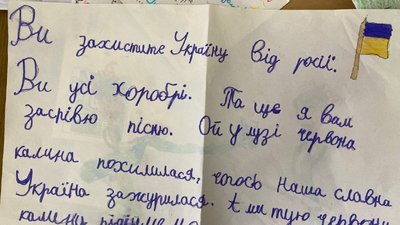 Ви захистите Україну від росії.
Ви усі хоробрі. Та ще я вам
заспівю пісню. Ой у лузі червона
калина похилилася, чогось наша славна
Україна зажурилася. А ми тую червону
калину підіймемо